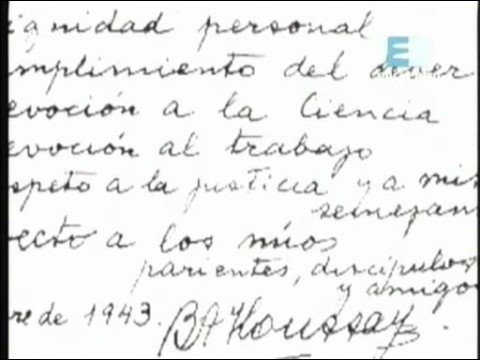 ignidad personal
mplimiento del deber
evoción a la Ciencia
evoción al trabajo
speto a la justicia y a mis
semejan
ecto a los míos
parientes, discípulos
y amigo
re de 1943. BAHoussay
E